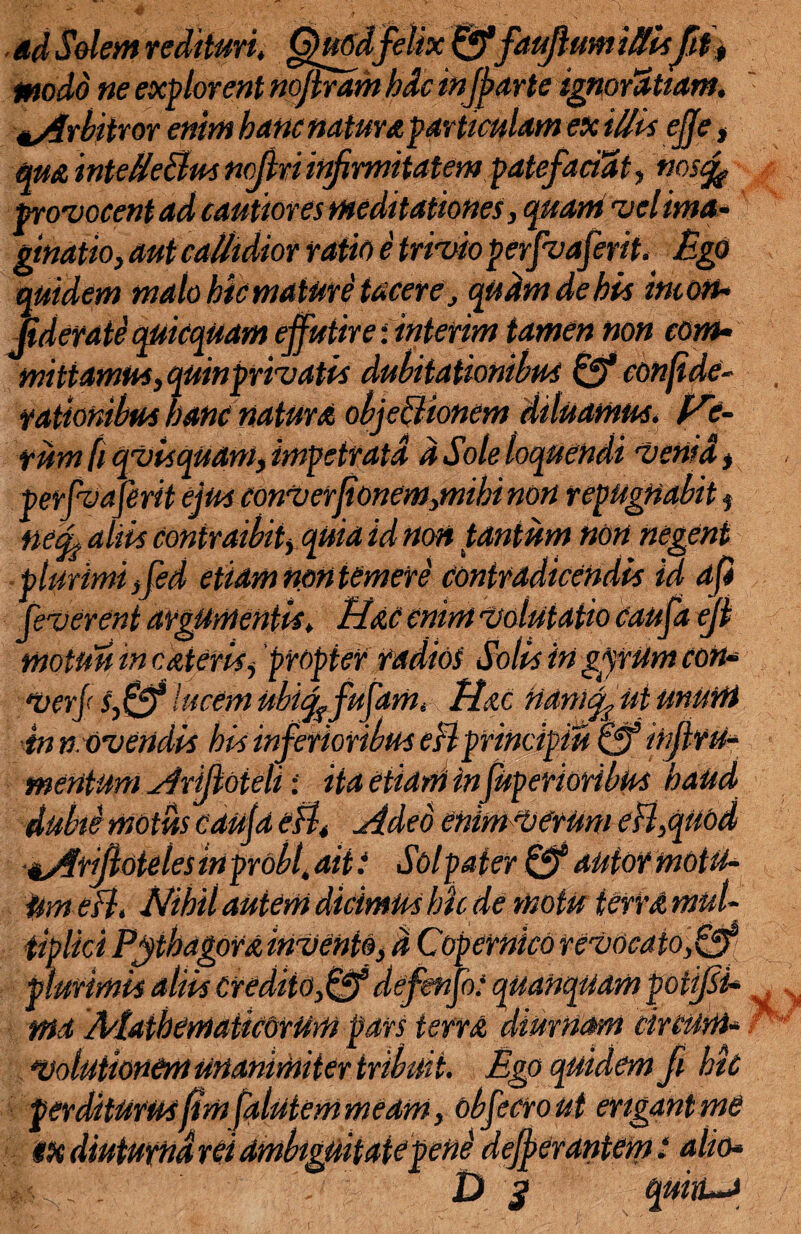 ad Solem redituri. Quód felix & faustum illis sit,
modò ne explorent nostram hâc in parte ignorãtiam.
Arbitror enim hanc naturæ particulam ex illis esse,
quæ intellectus nostri infirmitatem patefaciãt, nosq;
provocent ad cautiores meditationes, quam vel ima-
ginatio, aut callidior ratio è trivio persvaserit. Ego
quidem malo hic maturè tacere, quàm de his incon-
sideratè quicquam effutire: interim tamen non com-
mittamus, quin privatis dubitationibus & conside-
rationibus hanc naturæ objectionem diluamus. Ve-
rùm si qvisquam, impetratâ à Sole loquendi veniâ,
persvaserit ejus conversionem, mihi non repugnabit,
neq; aliis contraibit, quia id non tantùm non negent
plurimi, sed etiam non temerè contradicendis id as-
severent argumentis. Hæc enim volutatio causa est
motuũ in cæteris, propter radios Solis in gyrum con-
vers s, & lucem ubiq; fusam. Hæc namq; ut unum
in n.ovendis his inferioribus est principiũ & instru-
mentum Aristoteli: ita etiam in superioribus haud
dubiè motûs causa est. Adeò enim verum est, quòd
Aristoteles in probl. ait: Sol pater & autor motu-
um est. Nihil autem dicimus hîc de motu terræ mul-
tiplici Pythagoræ invento, à Copernico revocato, &
plurimis aliis credito, & defenso: quanquam potissi-
ma Mathematicorum pars terræ diurnam circum-
volutionem unanimiter tribuit. Ego quidem si hîc
perditurus sim salutem meam, obsecro ut erigant me
ex diuturnâ rei ambiguitate penè desperantem: alio-
D 3 quin